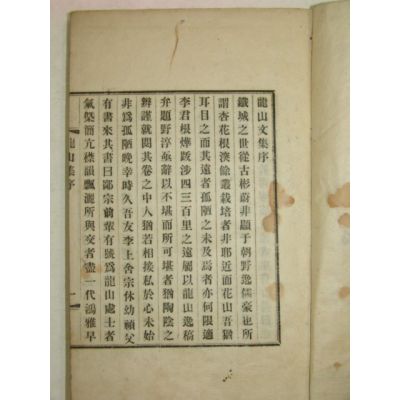 龍山文集序
鐵城之世從古彬蔚非顯于朝野逸儒豪也所
謂杏花根漢餘叢栽培者非耶近而花山吾猶
耳目之而其遠者孤陋之未及焉者亦何限適
李君根燁跋涉四三百里之遠屬以龍山逸稿
弁題野淳蔑辭以不堪而所可堪者猶陶陰之
辨謹就閱其卷之中人猶若相接私於心未始
非爲孤陋晩幸時久吾友李上舍宗休幼禎父
有書來其書曰鄙宗前輩有號爲龍山處士者
氣槩簡亢襟韻飄灑所與交者盡一代鴻雅早
龍山集序
一